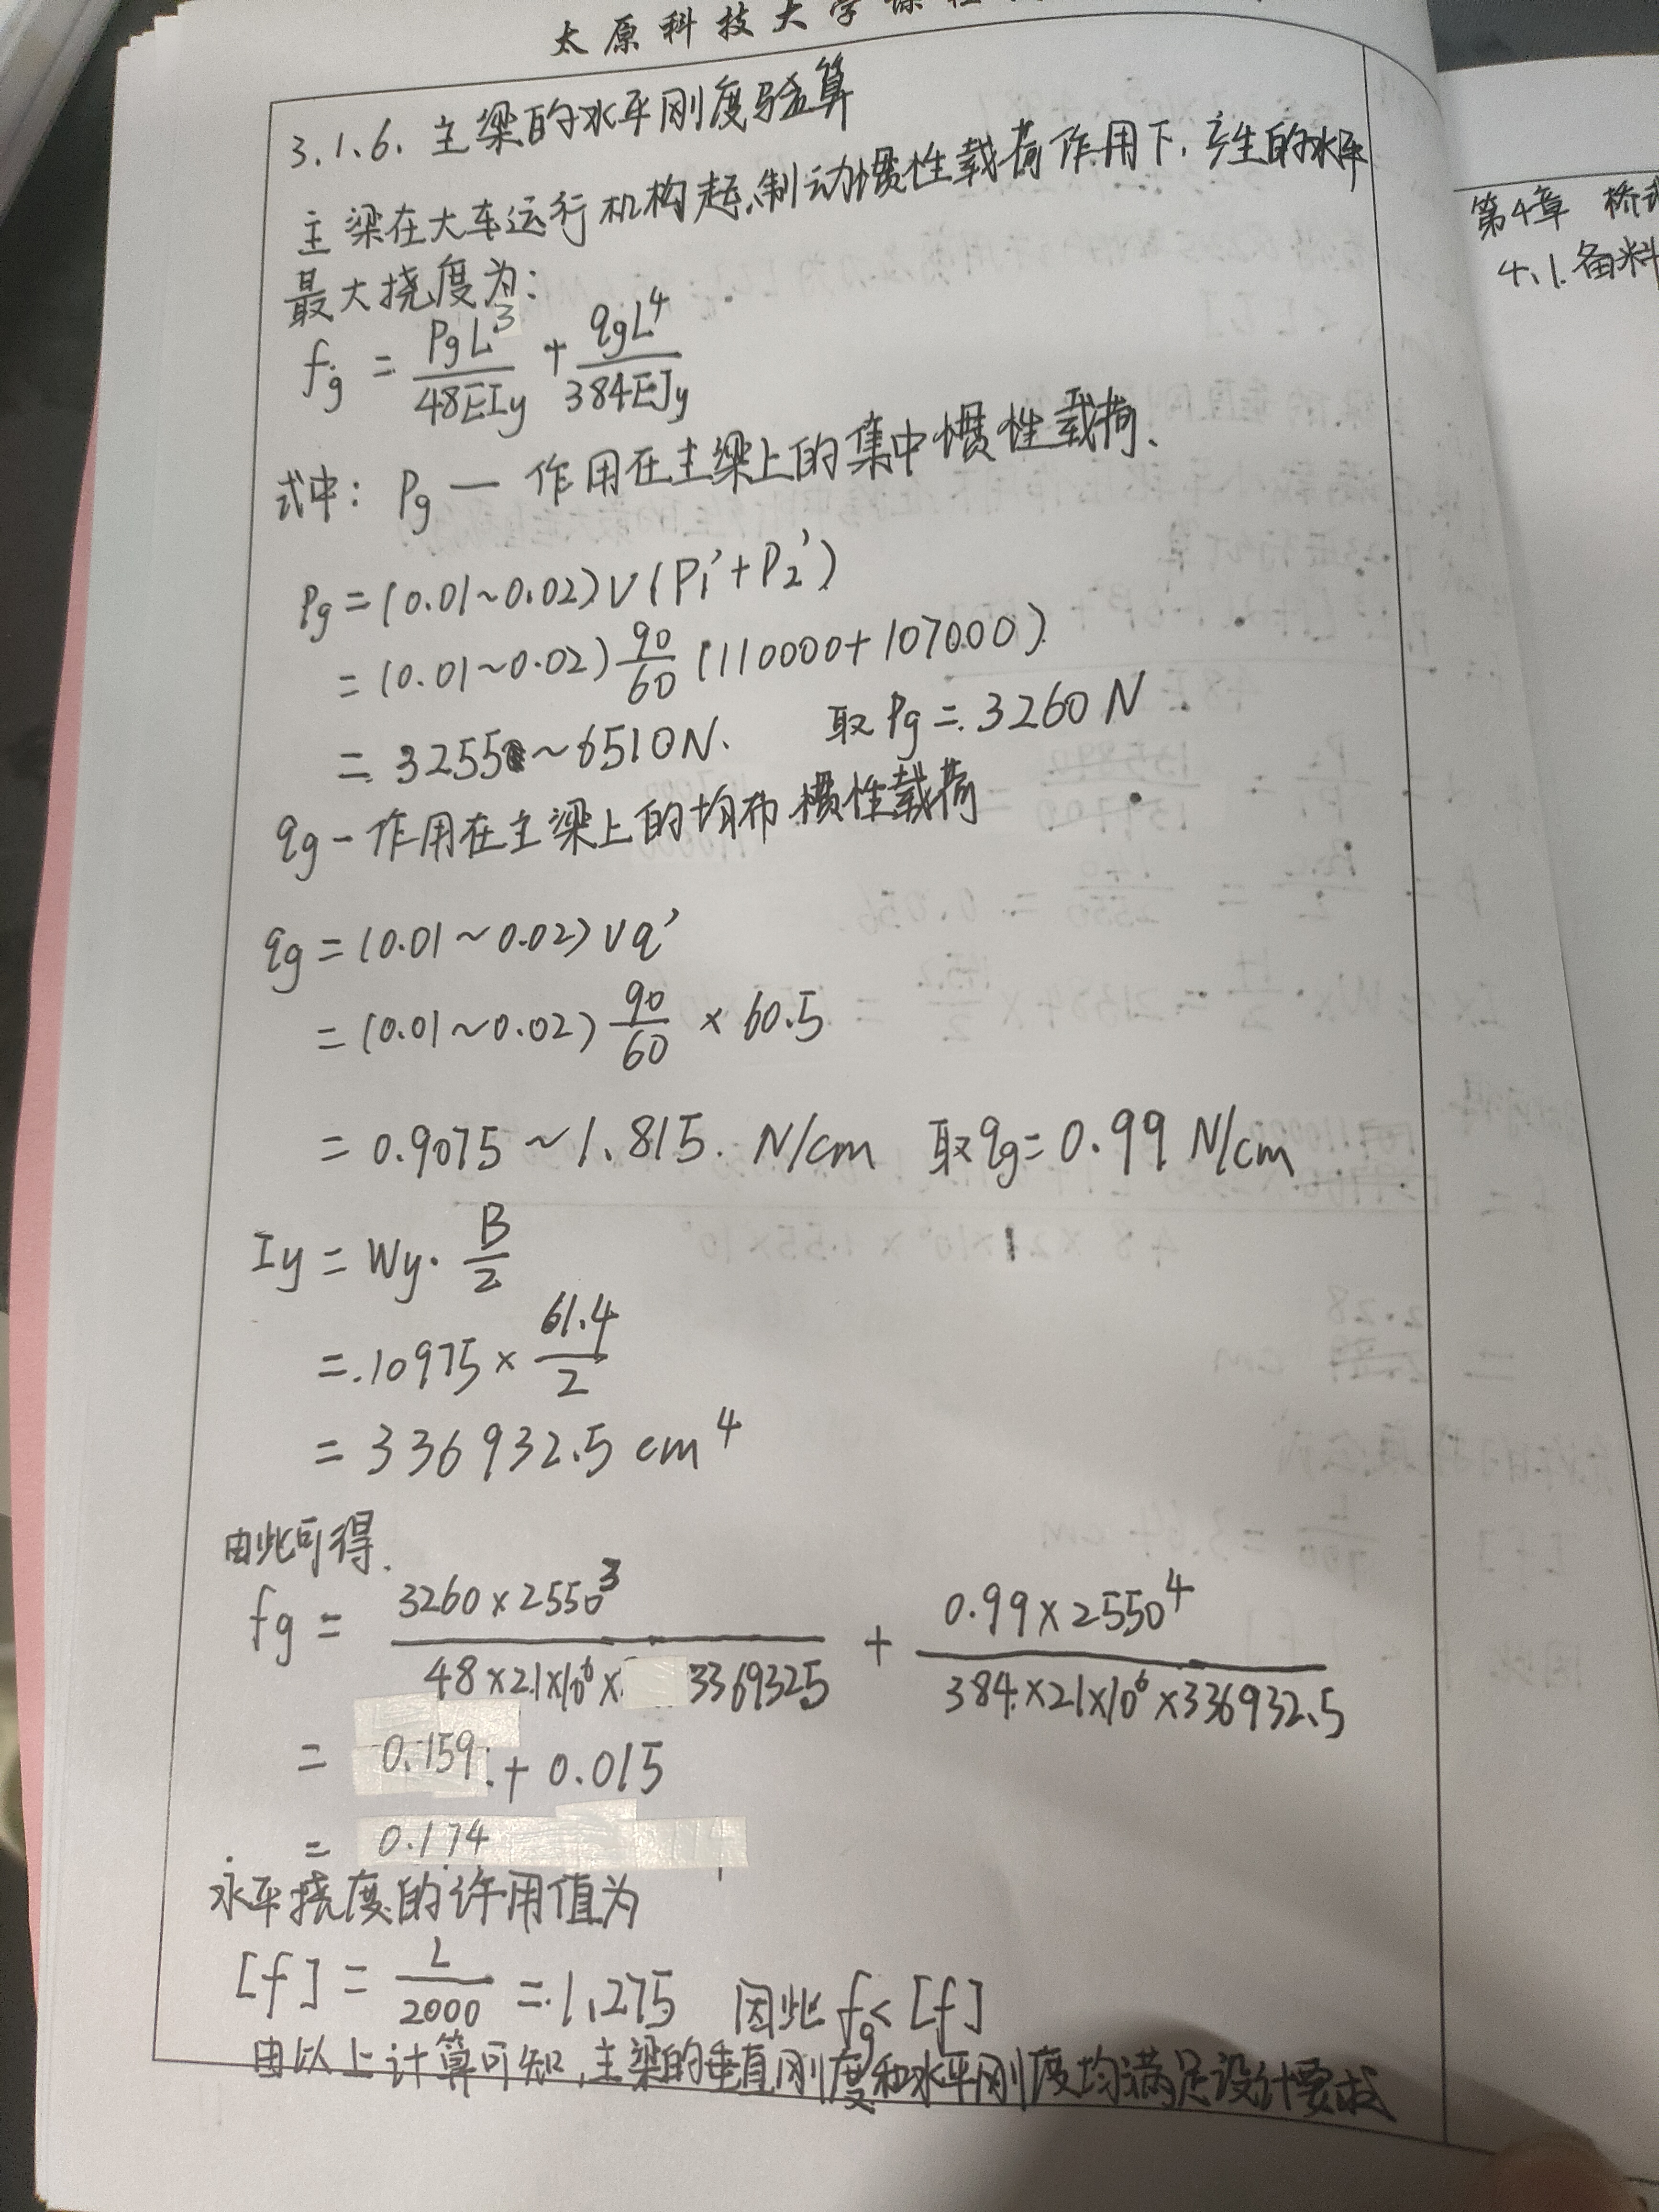 太原科技大学课程
3.1.6. 主梁的水平刚度验算
主梁在大车运行机构起、制动惯性载荷作用下,产生的水平
最大挠度为:
fg = PgL³/48EIy + qgL⁴/384EJy
式中: Pg — 作用在主梁上的集中惯性载荷、
Pg = (0.01~0.02)V(P1'+P2')
= (0.01~0.02) 90/60 (110000+107000)
= 3255~6510N. 取Pg = 3260N
qg - 作用在主梁上的均布惯性载荷
qg = (0.01~0.02)Vq'
= (0.01~0.02) 90/60 × 60.5
= 0.9075~1.815. N/cm 取qg = 0.99 N/cm
Iy = Wy· B/2
= 10975 × 61.4/2
= 336932.5 cm⁴
由此可得
fg = 3260×2550³/48×21×10⁶×3369325 + 0.99×2550⁴/384×21×10⁶×336932.5
= 0.159 + 0.015
= 0.174
水平挠度的许用值为
[f] = L/2000 = 1.275 因此 fg<[f]
由以上计算可知,主梁的垂直刚度和水平刚度均满足设计要求
第4章 桥
4.1.备料